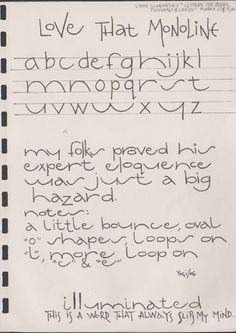 LOVE THAT MONOLINE
abcdefghijkl
mnopqrst
uvwwxyz
my folks proved his
expert eloquence
was just a big
hazard.
notes:
a little bounce, oval
"o" shapes, loops on
"l", more loop on
"c" & "e"
illuminated
THIS IS A WORD THAT ALWAYS SLIPS MY MIND.